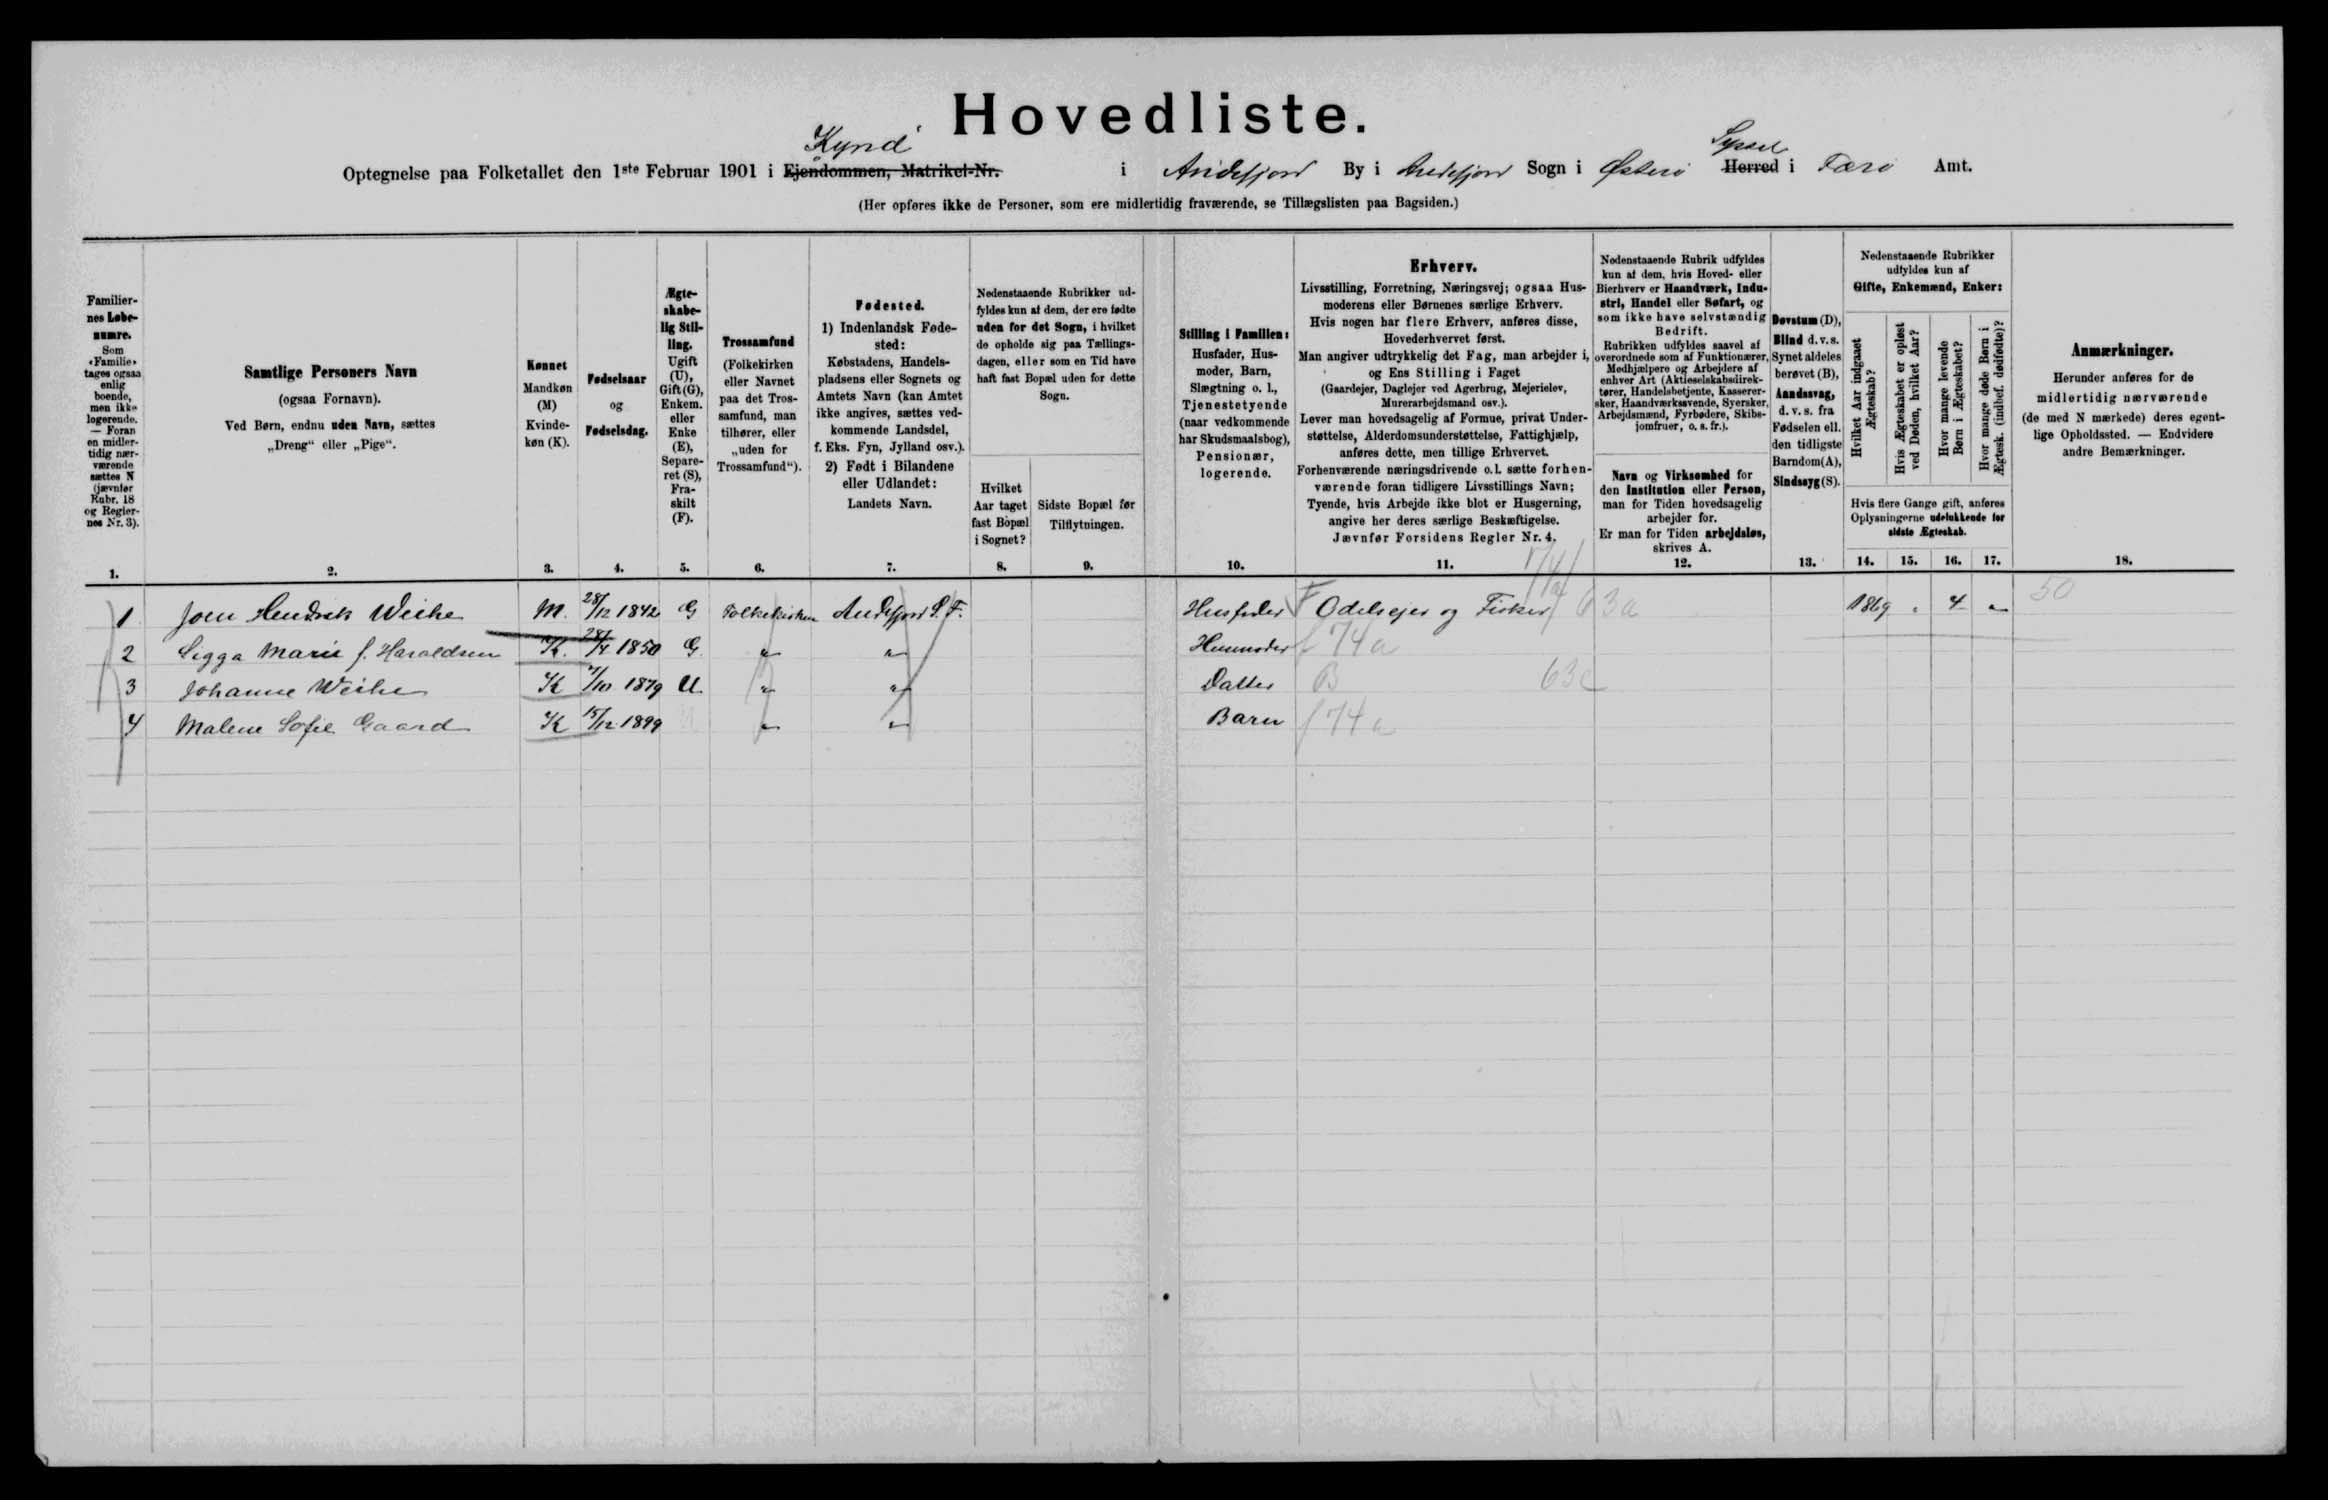 Hovedliste.
Kynd Syssel
Optegnelse paa Folketallet den 1ste Februar 1901 i Ejendommen, Matrikel-Nr. i Andefjord By i Andefjord Sogn i Østerø Herred i Færø Amt.
(Her opføres ikke de Personer, som ere midlertidig fraværende, se Tillægslisten paa Bagsiden.)
Familier-
nes Løbe-
numre.
Som
«Familie»
tages ogsaa
enlig
boende,
men ikke
logerende.
— Foran
en midler-
tidig nær-
værende
sættes N
(jævnfør
Rubr. 18
og Regler-
nes Nr. 3).
Samtlige Personers Navn
(ogsaa Fornavn).
Ved Børn, endnu uden Navn, sættes
„Dreng“ eller „Pige“.
Kønnet
Mandkøn
(M)
Kvinde-
køn (K).
Fødselsaar
og
Fødselsdag.
Ægte-
skabe-
lig Stil-
ling.
Ugift
(U),
Gift (G),
Enkem.
eller
Enke
(E),
Separe-
ret (S),
Fra-
skilt
(F).
Trossamfund
(Folkekirken
eller Navnet
paa det Tros-
samfund, man
tilhører, eller
„uden for
Trossamfund“).
Fødested.
1) Indenlandsk Føde-
sted:
Købstadens, Handels-
pladsens eller Sognets og
Amtets Navn (kan Amtet
ikke angives, sættes ved-
kommende Landsdel,
f. Eks. Fyn, Jylland osv.).
2) Født i Bilandene
eller Udlandet:
Landets Navn.
Nedenstaaende Rubrikker ud-
fyldes kun af dem, der ere fødte
uden for det Sogn, i hvilket
de opholde sig paa Tællings-
dagen, eller som en Tid have
haft fast Bopæl uden for dette
Sogn.
Hvilket
Aar taget
fast Bopæl
i Sognet?
Sidste Bopæl før
Tilflytningen.
Stilling i Familien:
Husfader, Hus-
moder, Barn,
Slægtning o. l.,
Tjenestetyende
(naar vedkommende
har Skudsmaalsbog),
Pensionær,
logerende.
Erhverv.
Livsstilling, Forretning, Næringsvej; ogsaa Hus-
moderens eller Børnenes særlige Erhverv.
Hvis nogen har flere Erhverv, anføres disse,
Hovederhvervet først.
Man angiver udtrykkelig det Fag, man arbejder i,
og Ens Stilling i Faget
(Gaardejer, Daglejer ved Agerbrug, Mejerielev,
Murerarbejdsmand osv.).
Lever man hovedsagelig af Formue, privat Under-
støttelse, Alderdomsunderstøttelse, Fattighjælp,
anføres dette, men tillige Erhvervet.
Forhenværende næringsdrivende o. l. sætte forhen-
værende foran tidligere Livsstillings Navn;
Tyende, hvis Arbejde ikke blot er Husgerning,
angive her deres særlige Beskæftigelse.
Jævnfør Forsidens Regler Nr. 4.
Nedenstaaende Rubrik udfyldes
kun af dem, hvis Hoved- eller
Bierhverv er Haandværk, Indu-
stri, Handel eller Søfart, og
som ikke have selvstændig
Bedrift.
Rubrikken udfyldes saavel af
overordnede som af Funktionærer,
Medhjælpere og Arbejdere af
enhver Art (Aktieselskabsdirek-
tører, Handelsbetjente, Kasserer-
sker, Haandværkssvende, Syersker,
Arbejdsmænd, Fyrbødere, Skibs-
jomfruer, o. s. fr.).
Navn og Virksomhed for
den Institution eller Person,
man for Tiden hovedsagelig
arbejder for.
Er man for Tiden arbejdsløs,
skrives A.
Døvstum (D),
Blind d. v. s.
Synet aldeles
berøvet (B),
Aandssvag,
d. v. s. fra
Fødselen ell.
den tidligste
Barndom (A),
Sindssyg (S).
Nedenstaaende Rubrikker
udfyldes kun af
Gifte, Enkemænd, Enker:
Hvilket Aar indgaaet
Ægteskab?
Hvis Ægteskabet er opløst
ved Døden, hvilket Aar?
Hvor mange levende
Børn i Ægteskabet?
Hvor mange døde Børn i
Ægtesk. (indbef. dødfødte)?
Hvis flere Gange gift, anføres
Oplysningerne udelukkende for
sidste Ægteskab.
Anmærkninger.
Herunder anføres for de
midlertidig nærværende
(de med N mærkede) deres egent-
lige Opholdssted. — Endvidere
andre Bemærkninger.
1. 2. 3. 4. 5. 6. 7. 8. 9. 10. 11. 12. 13. 14. 15. 16. 17. 18.
1 Joen Hendrik Weihe M. 28/12 1842 G Folkekirken Andefjord S. F. Husfader F Odelsejer og Fisker 63a 1869 " 4 " 50
2 Sigga Marie f. Haraldsen K. 1850 G. " " Husmoder f 74a
3 Johanne Weihe K 7/10 1879 U " " Datter B 63c
4 Malene Sofie Gaard K 15/12 1899 U " " Barn f 74a